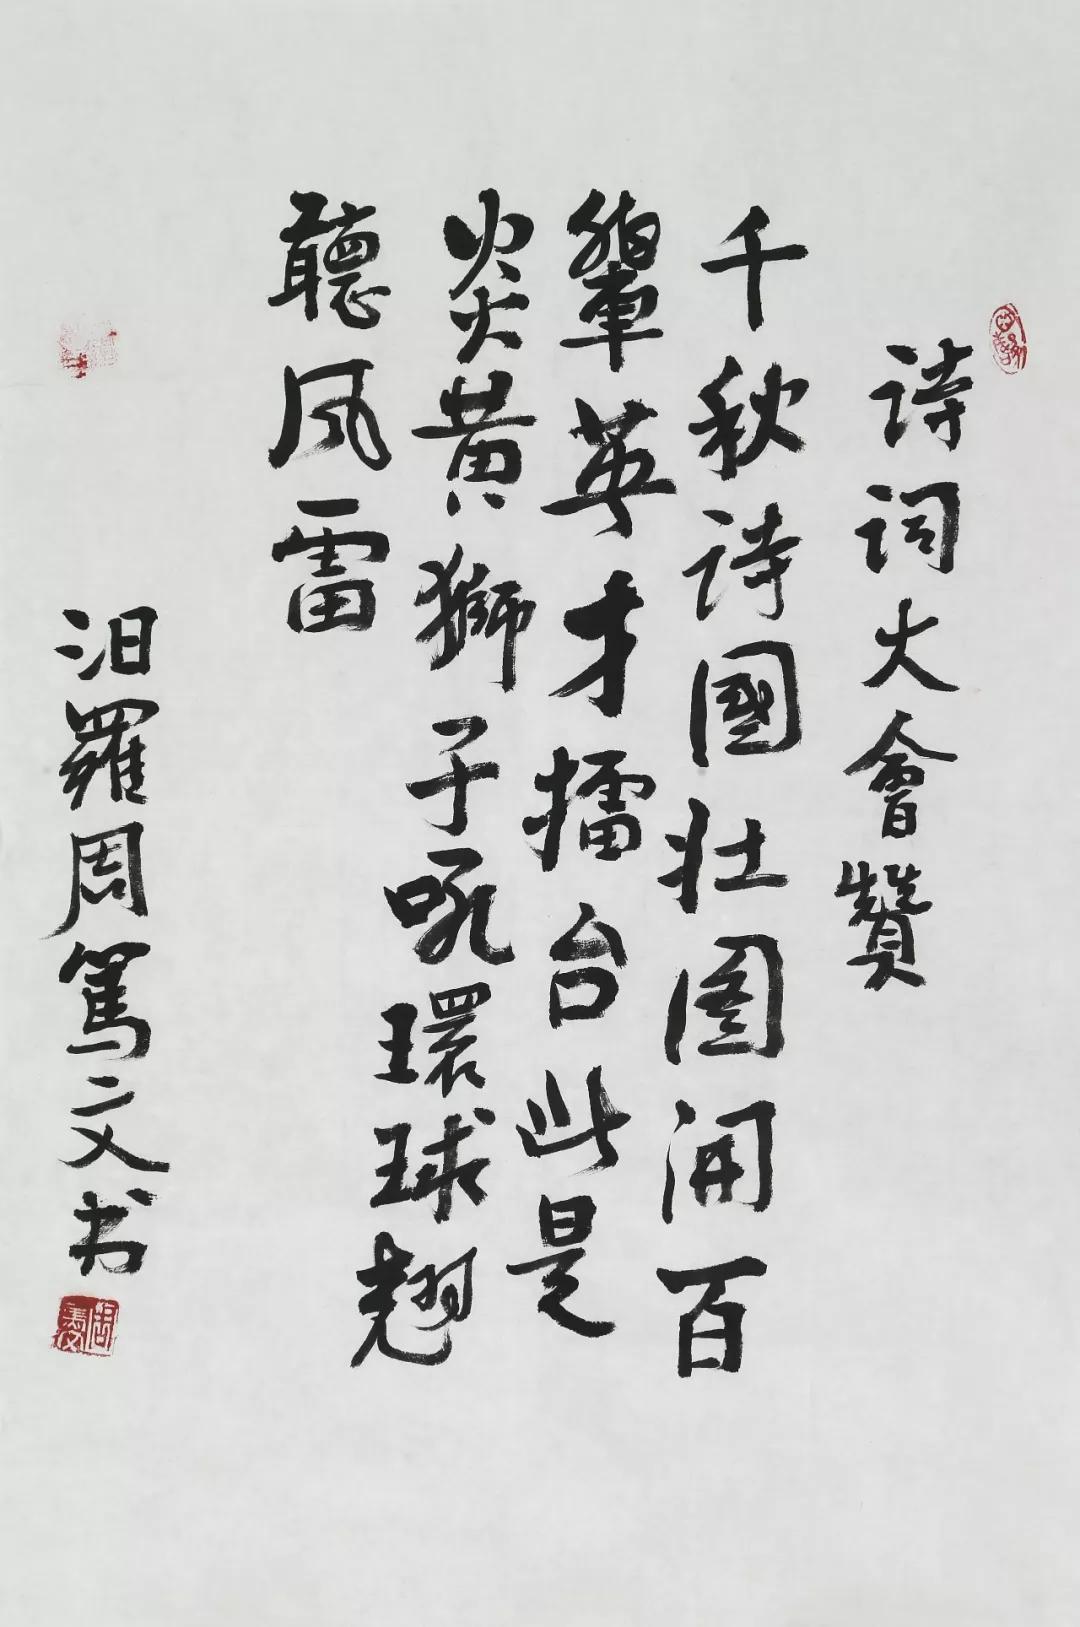 诗词大會贊
千秋诗國壮图開百
輩英才擂台此是
炎黄獅子吼環球翘
聽风雷
汨羅周篤文书